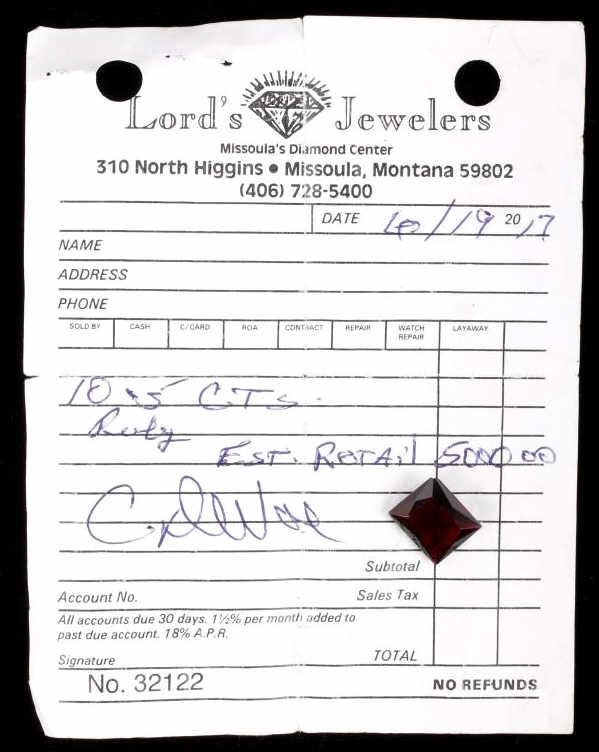 Lord's Jewelers
Missoula's Diamond Center
310 North Higgins • Missoula, Montana 59802
(406) 728-5400
DATE 6/19 2017
NAME
ADDRESS
PHONE
SOLD BY CASH C/CARD ROA CONTRACT REPAIR WATCH REPAIR LAYAWAY
10.5 CTS.
Ruby
EST. RETAil 5000 00
Subtotal
Account No. Sales Tax
All accounts due 30 days. 1½% per month added to
past due account. 18% A.P.R.
Signature TOTAL
No. 32122 NO REFUNDS